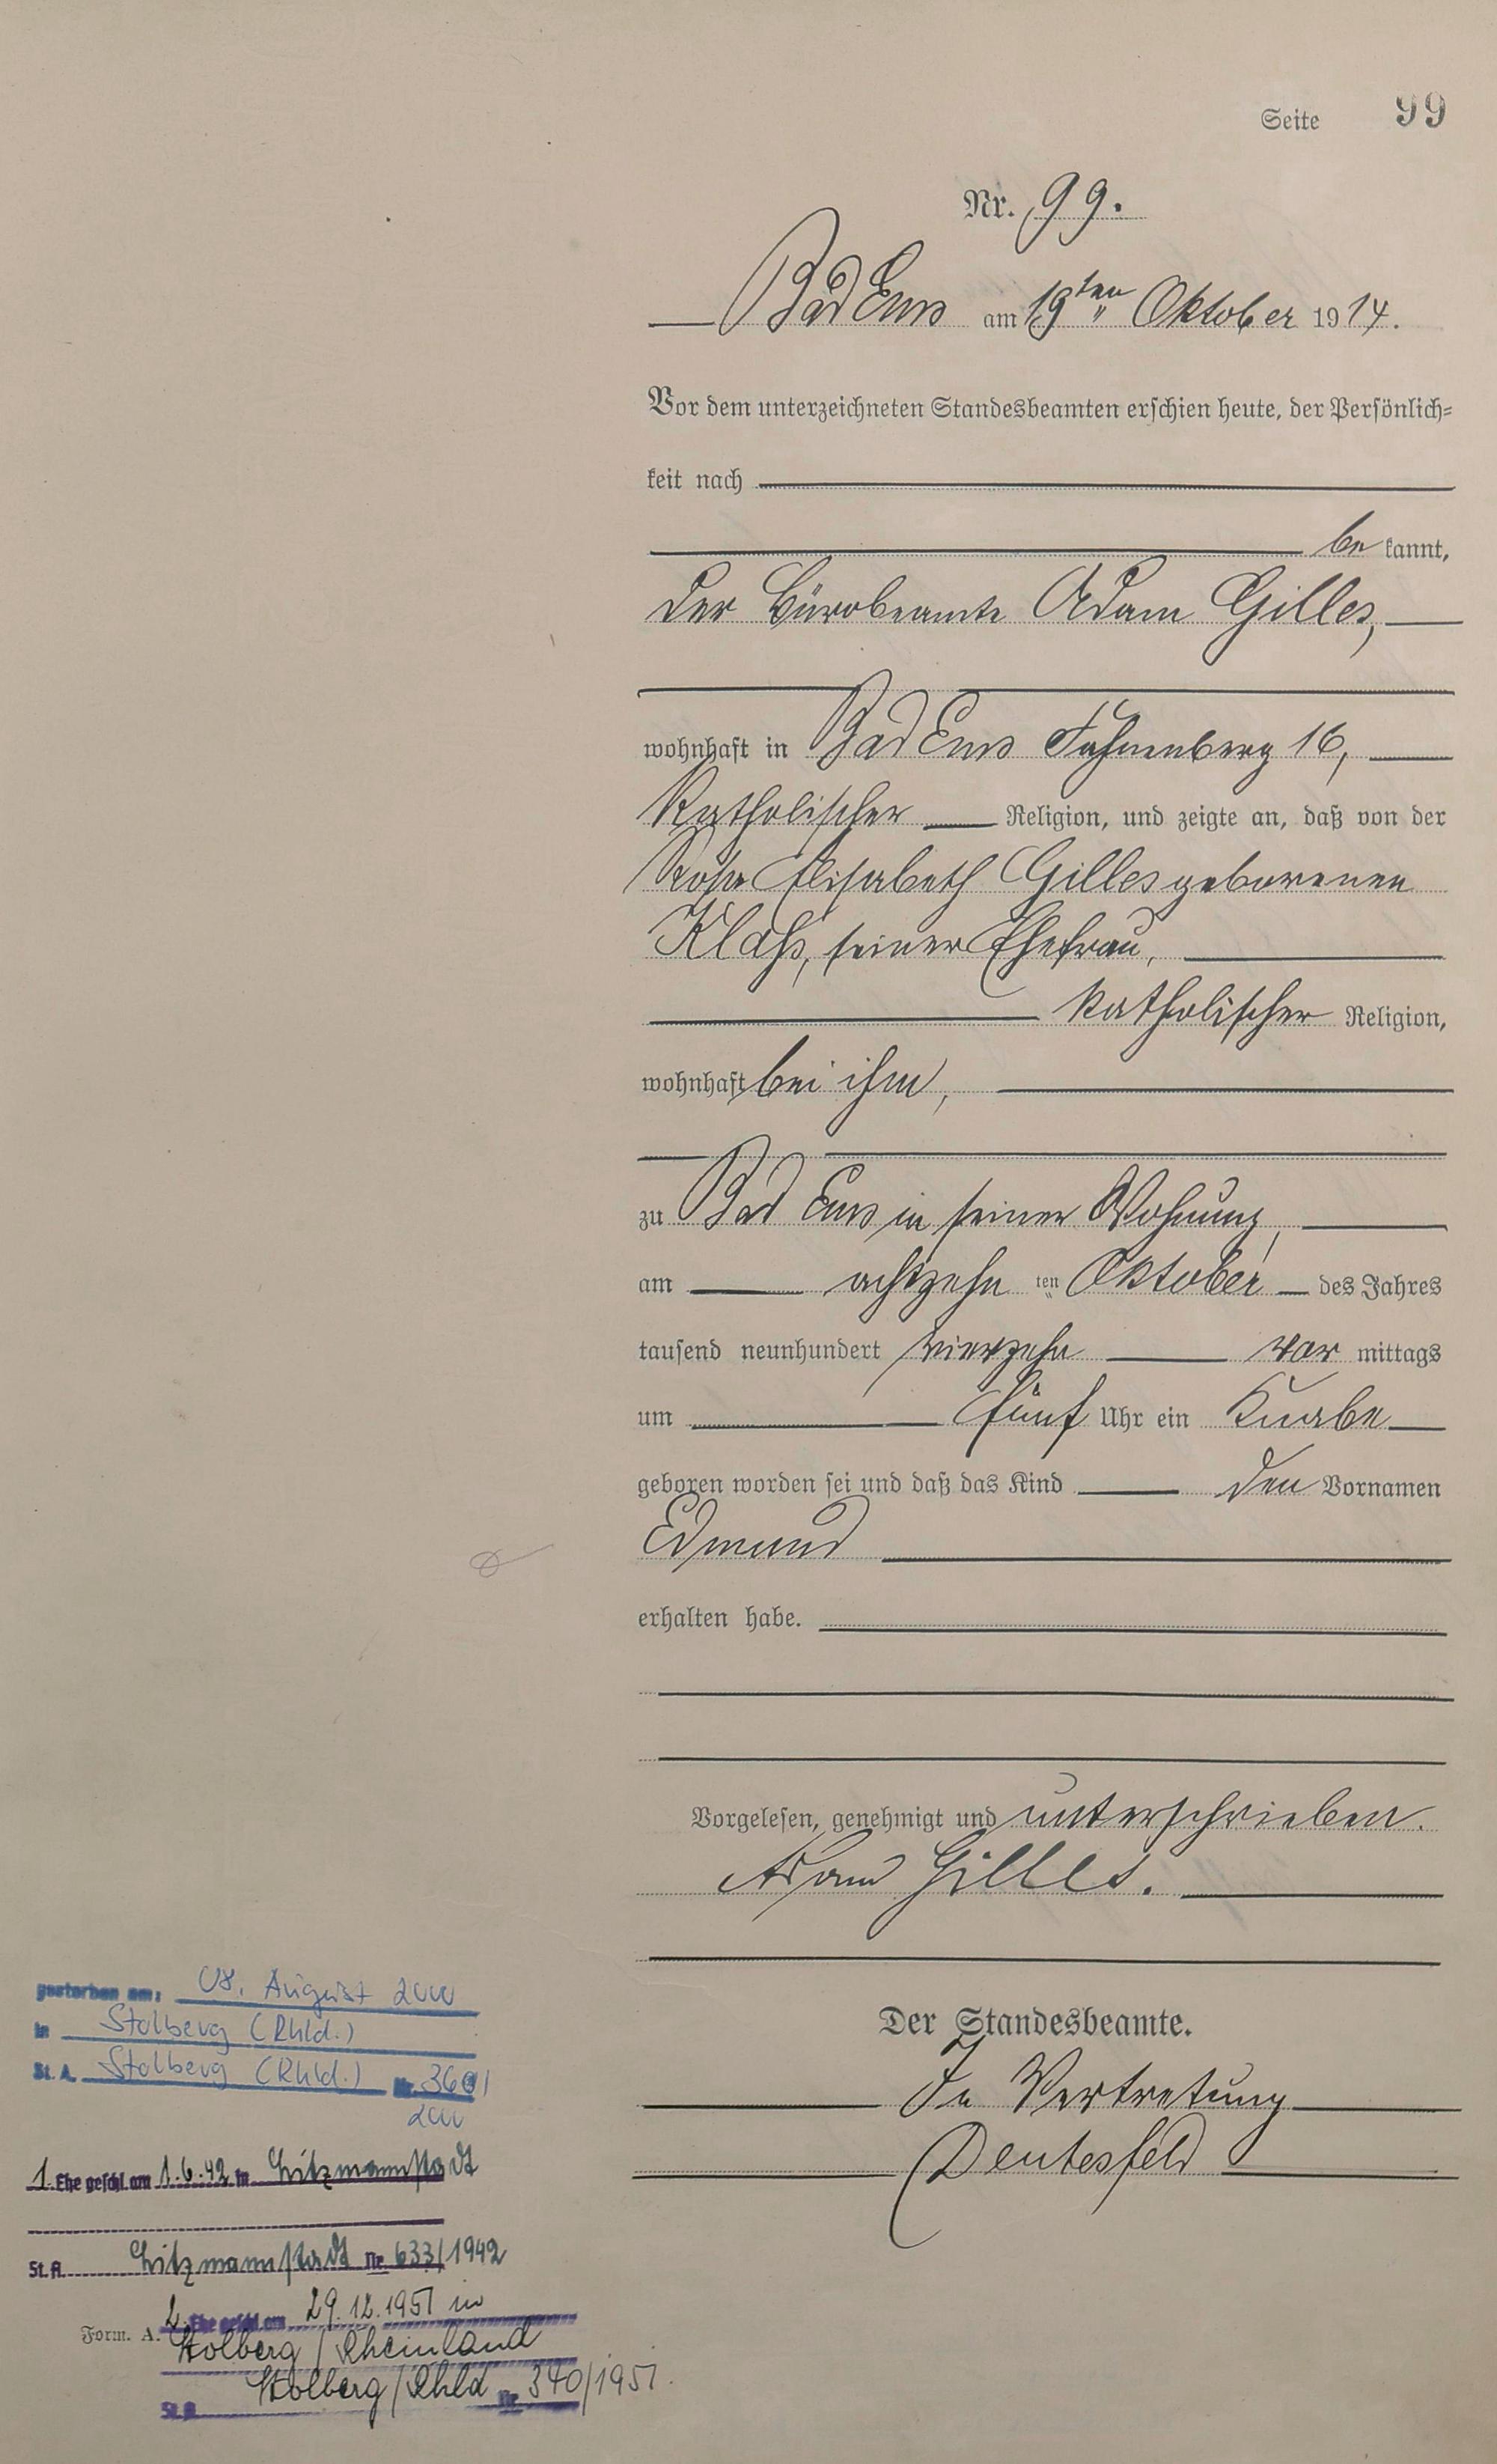 Seite 99
Nr. 99.
Bad Ems am 19ten Oktober 1914.
Vor dem unterzeichneten Standesbeamten erschien heute, der Persönlich-
keit nach
be kannt,
der Bürobeamte Adam Gilles,
wohnhaft in Bad Ems Fahnenberg 16,
Katholischer Religion, und zeigte an, daß von der
Rosa Elisabeth Gilles geborenen
Klaß, seiner Ehefrau,
katholischer Religion,
wohnhaft bei ihm,
zu Bad Ems in seiner Wohnung,
am achtzehn ten Oktober des Jahres
tausend neunhundert vierzehn vor mittags
um fünf Uhr ein Knabe
geboren worden sei und daß das Kind den Vornamen
Edmund
erhalten habe.
Vorgelesen, genehmigt und unterschrieben.
Adam Gilles.
Der Standesbeamte.
In Vertretung
Deutesfeld
gestorben am: 08. August 2000
in Stolberg (Rhld.)
St. A. Stolberg (Rhld.) Nr. /
2000
1. Ehe geschl. am 1.6.42 in Litzmannstadt
St. A. Litzmannstadt Nr. 633/1942
2. Ehe geschl. am 29.12.1951 in
Form. A. Stolberg / Rheinland
St. A. Stolberg / Rhld Nr. 340/1951.